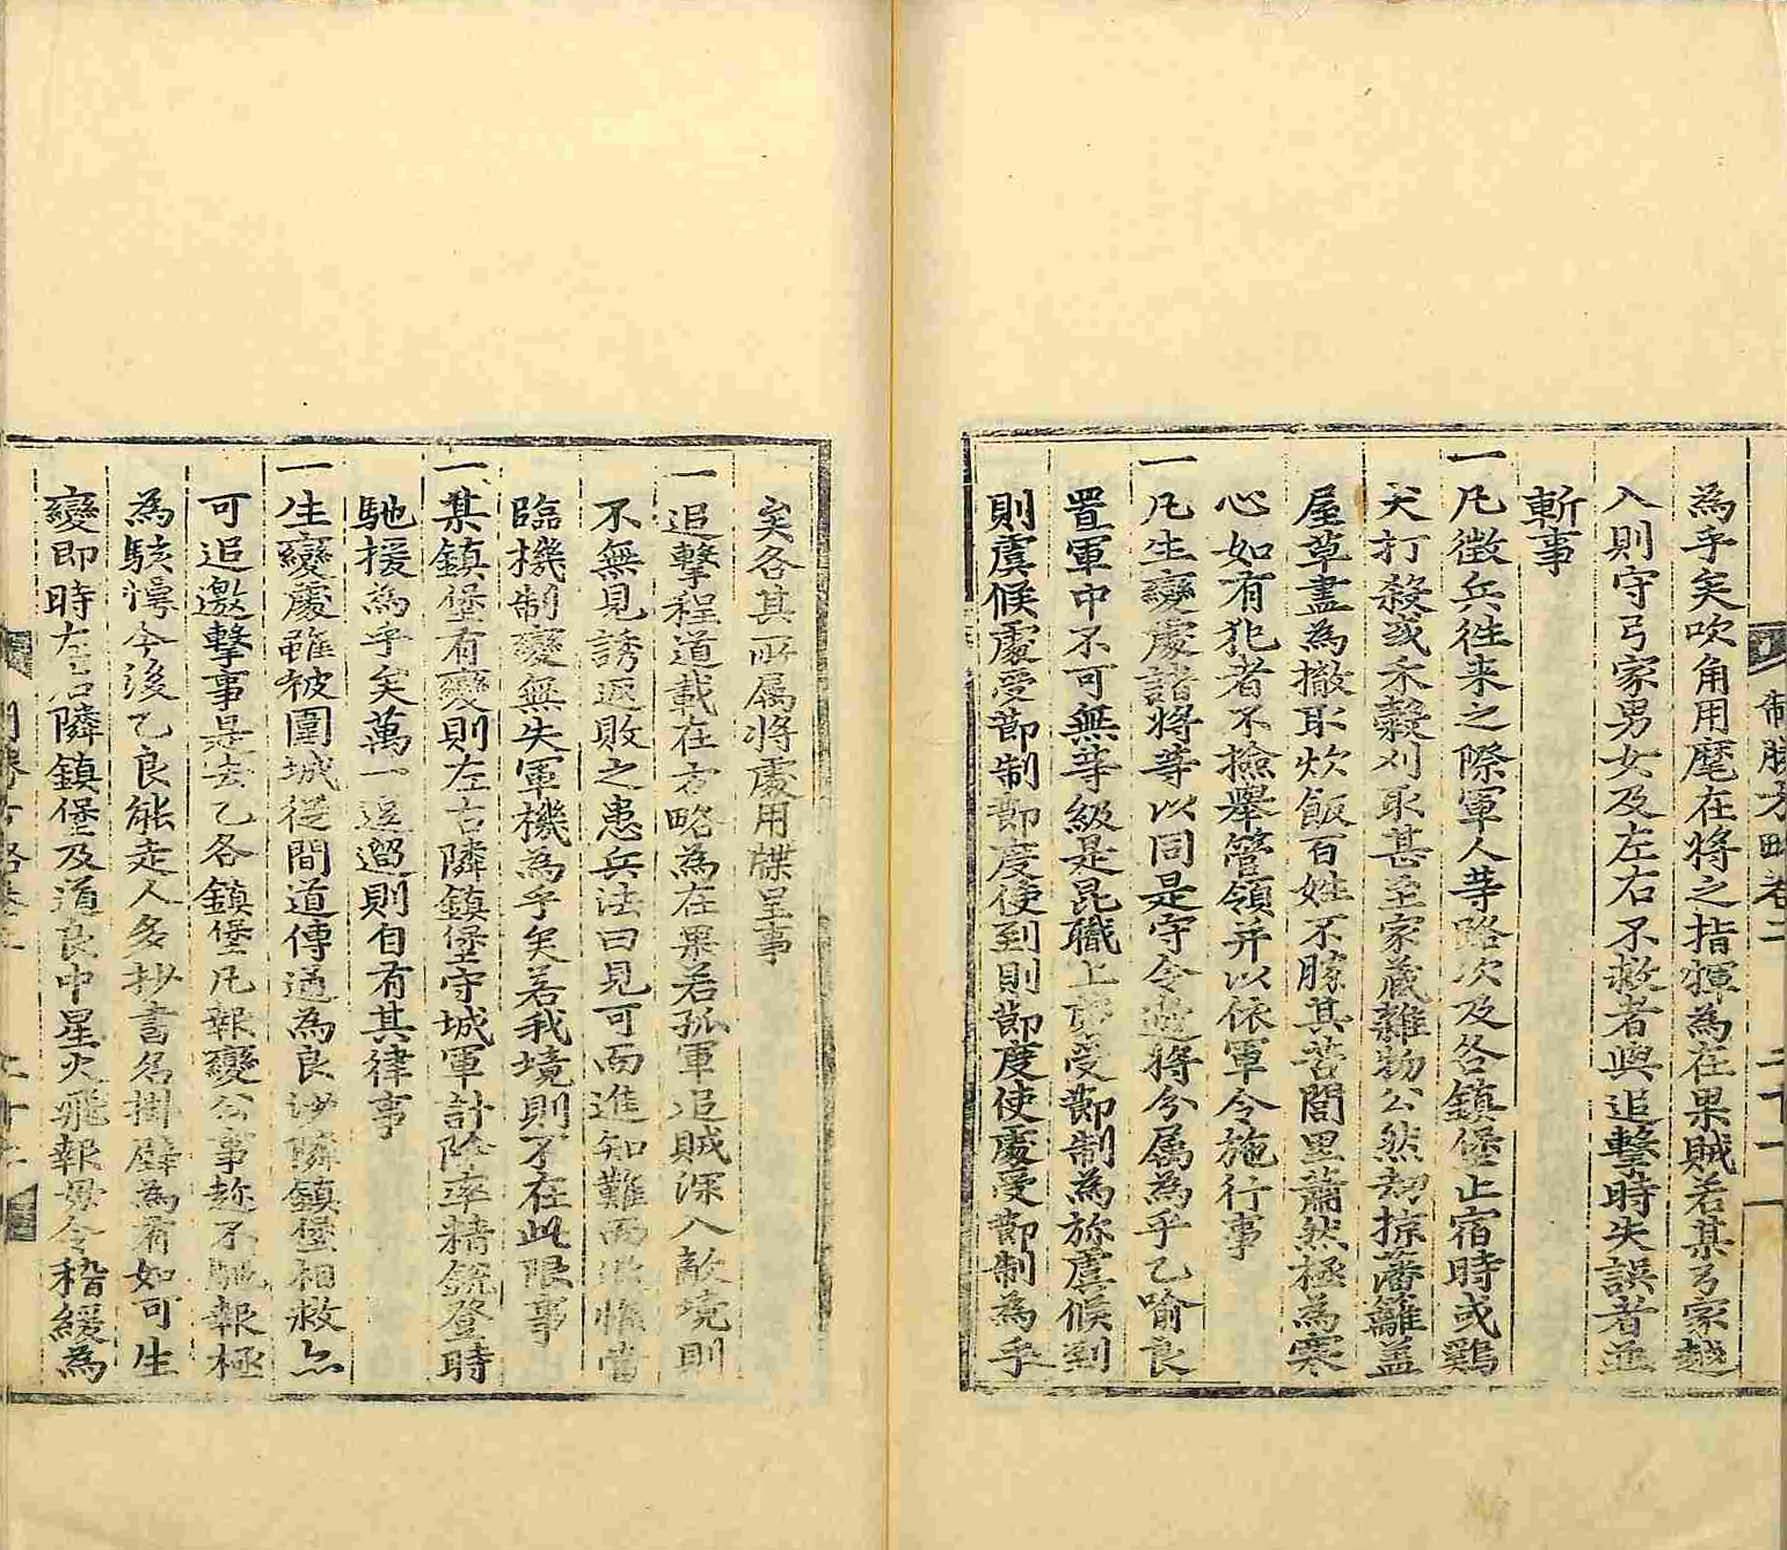 制勝方略卷二 二十一
為乎矣吹角用麾在將之指揮為在果賊若某弓家越
入則守弓家男女及左右不救者與追擊時失誤者並
斬事
一凡徵兵徃来之際軍人等路次及各鎮堡止宿時或鷄
犬打殺或禾糓刈取甚至家藏雜物公然刼掠藩籬盖
屋草盡為撤取炊飯百姓不勝其苦閭里蕭然極為寒
心如有犯者不撿擧管領并以依軍令施行事
一凡生變處諸將等以同是守令邊將分属為乎乙喻良
置軍中不可無等級是昆職上 受節制為旀虞候到
則虞候處受節制節度使到則節度使處受節制為乎
矣各其所属將處用牒呈事
一追擊程道載在方略為在果若孤軍追賊深入敵境則
不無見誘返敗之患兵法曰見可而進知難而退惟當
臨機制變無失軍機為乎矣若我境則不在此限事
一某鎮堡有變則左右隣鎮堡守城軍計除率精銳登時
馳援為乎矣萬一逗遛則自有其律事
一生變處雖被圍城從間道傳通為良沙隣鎮堡相救亦
可追邀擊事是去乙各鎮堡凡報變公事趂不馳報極
為駭愕今後乙良能走人多抄書名掛壁為有如可生
變即時左右隣鎮堡及道良中星火飛報毋令稽緩為